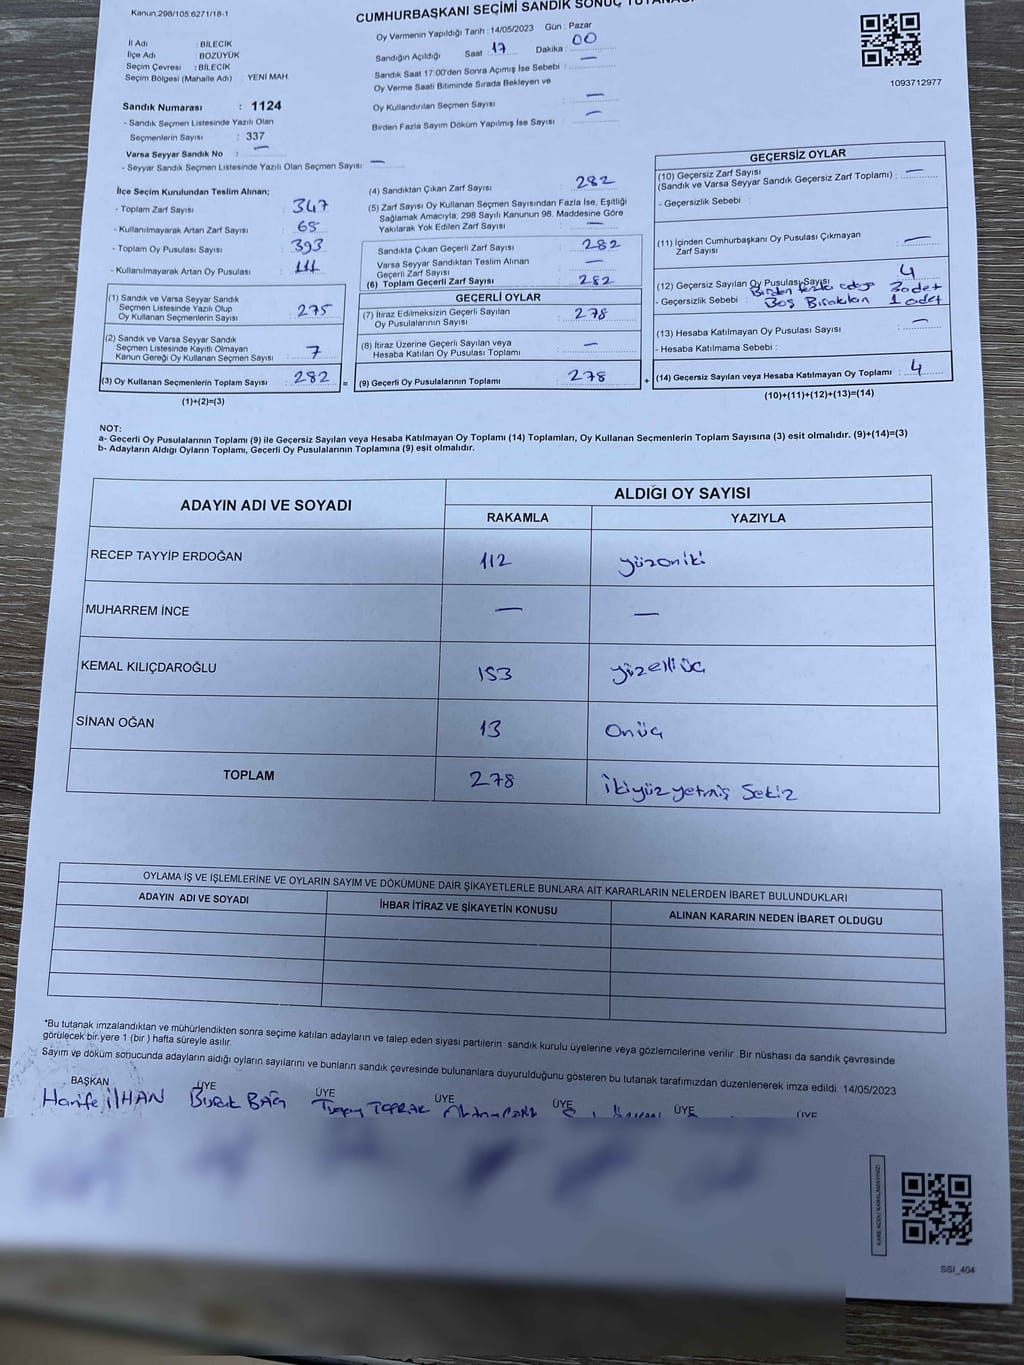 Kanun.298/105 6271/18-1
CUMHURBAŞKANI SEÇİMİ SANDIK SONUÇ TUTANAĞI
Oy Vermenin Yapıldığı Tarih : 14/05/2023 Gün : Pazar
İl Adı : BİLECİK
İlçe Adı : BOZÜYÜK
Seçim Çevresi : BİLECİK
Seçim Bölgesi (Mahalle Adı) : YENİ MAH
Sandığın Açıldığı Saat 17 Dakika : 00
Sandık Saat 17:00'den Sonra Açımış İse Sebebi : —
Oy Verme Saati Bitiminde Sırada Bekleyen ve
Oy Kullandırılan Seçmen Sayısı : —
Birden Fazla Sayım Döküm Yapılmış İse Sayısı : —
1093712977
Sandık Numarası : 1124
- Sandık Seçmen Listesinde Yazılı Olan
Seçmenlerin Sayısı : 337
Varsa Seyyar Sandık No : —
- Seyyar Sandık Seçmen Listesinde Yazılı Olan Seçmen Sayısı: —
İlçe Seçim Kurulundan Teslim Alınan;
- Toplam Zarf Sayısı : 347
- Kullanılmayarak Artan Zarf Sayısı : 65
- Toplam Oy Pusulası Sayısı : 393
- Kullanılmayarak Artan Oy Pusulası : 111
(1) Sandık ve Varsa Seyyar Sandık
Seçmen Listesinde Yazılı Olup
Oy Kullanan Seçmenlerin Sayısı : 275
(2) Sandık ve Varsa Seyyar Sandık
Seçmen Listesinde Kayıtlı Olmayan
Kanun Gereği Oy Kullanan Seçmen Sayısı : 7
(3) Oy Kullanan Seçmenlerin Toplam Sayısı : 282 =
(1)+(2)=(3)
(4) Sandıktan Çıkan Zarf Sayısı : 282
(5) Zarf Sayısı Oy Kullanan Seçmen Sayısından Fazla İse, Eşitliği
Sağlamak Amacıyla; 298 Sayılı Kanunun 98. Maddesine Göre
Yakılarak Yok Edilen Zarf Sayısı : —
Sandıkta Çıkan Geçerli Zarf Sayısı : 282
Varsa Seyyar Sandıktan Teslim Alınan
Geçerli Zarf Sayısı : —
(6) Toplam Geçerli Zarf Sayısı : 282
GEÇERLİ OYLAR
(7) İtiraz Edilmeksizin Geçerli Sayılan
Oy Pusulalarının Sayısı : 278
(8) İtiraz Üzerine Geçerli Sayılan veya
Hesaba Katılan Oy Pusulası Toplamı : —
(9) Geçerli Oy Pusulalarının Toplamı : 278 +
GEÇERSİZ OYLAR
(10) Geçersiz Zarf Sayısı
(Sandık ve Varsa Seyyar Sandık Geçersiz Zarf Toplamı) : —
- Geçersizlik Sebebi :
(11) İçinden Cumhurbaşkanı Oy Pusulası Çıkmayan
Zarf Sayısı : —
(12) Geçersiz Sayılan Oy Pusulası Sayısı : 4
- Geçersizlik Sebebi : Birden fazla adaya 3 adet
Boş Bırakılan 1 adet
(13) Hesaba Katılmayan Oy Pusulası Sayısı : —
- Hesaba Katılmama Sebebi :
(14) Geçersiz Sayılan veya Hesaba Katılmayan Oy Toplamı : 4
(10)+(11)+(12)+(13)=(14)
NOT:
a- Gecerli Oy Pusulalarının Toplamı (9) ile Geçersiz Sayılan veya Hesaba Katılmayan Oy Toplamı (14) Toplamları, Oy Kullanan Seçmenlerin Toplam Sayısına (3) eşit olmalıdır. (9)+(14)=(3)
b- Adayların Aldığı Oyların Toplamı, Geçerli Oy Pusulalarının Toplamına (9) eşit olmalıdır.
ADAYIN ADI VE SOYADI ALDIĞI OY SAYISI
RAKAMLA YAZIYLA
RECEP TAYYİP ERDOĞAN 112 yüzoniki
MUHARREM İNCE — —
KEMAL KILIÇDAROĞLU 153 yüzelliüç
SİNAN OĞAN 13 Onüç
TOPLAM 278 İkiyüzyetmiş Sekiz
OYLAMA İŞ VE İŞLEMLERİNE VE OYLARIN SAYIM VE DÖKÜMÜNE DAİR ŞİKAYETLERLE BUNLARA AİT KARARLARIN NELERDEN İBARET BULUNDUKLARI
ADAYIN ADI VE SOYADI İHBAR İTİRAZ VE ŞİKAYETİN KONUSU ALINAN KARARIN NEDEN İBARET OLDUGU
*Bu tutanak imzalandıktan ve mühürlendikten sonra seçime katılan adayların ve talep eden siyasi partilerin sandık kurulu üyelerine veya gözlemcilerine verilir .Bir nüshası da sandık çevresinde
görülecek bir yere 1 (bir ) hafta süreyle asılır.
Sayım ve döküm sonucunda adayların aldığı oyların sayılarını ve bunların sandık çevresinde bulunanlara duyurulduğunu gösteren bu tutanak tarafımızdan düzenlenerek imza edildi. 14/05/2023
BAŞKAN ÜYE ÜYE ÜYE ÜYE ÜYE ÜYE
Hanife İLHAN Burak BAĞ TOPRAK
SSI_404